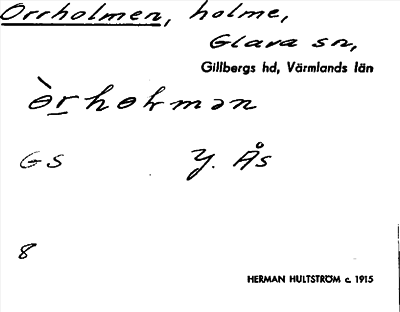 Orrholmen, holme,
Glava sn,
Gillbergs hd, Värmlands län
GS Y. Ås
8
HERMAN HULTSTRÖM c. 1915